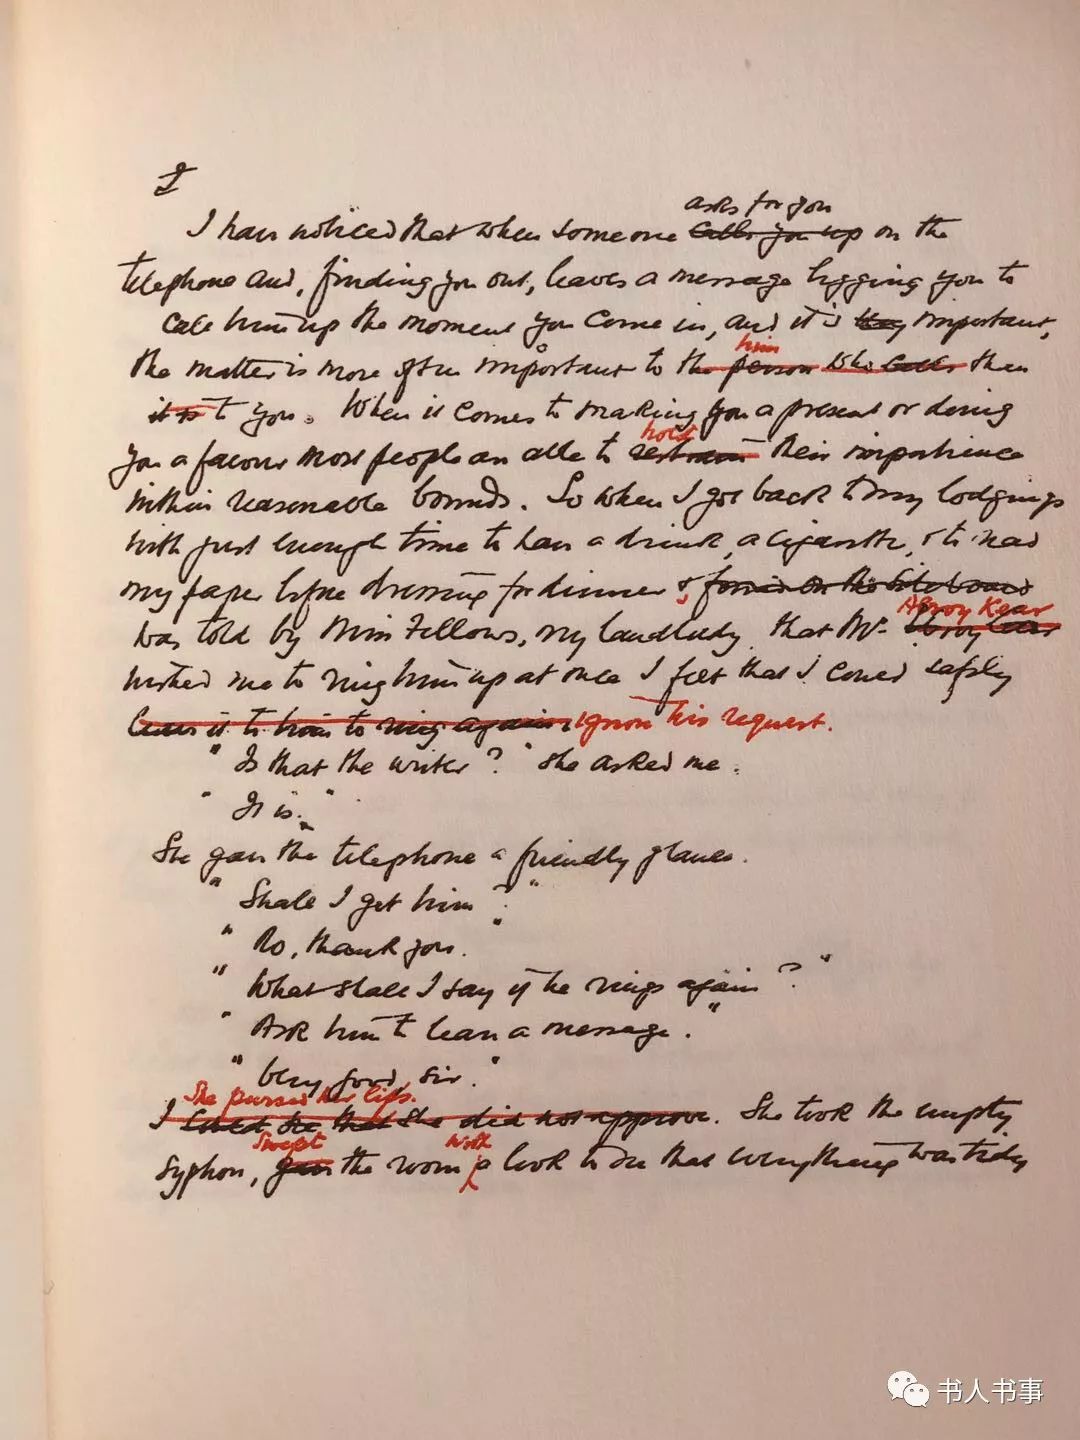 I
asks for you
I have noticed that when someone calls you up on the
telephone and, finding you out, leaves a message begging you to
call him up the moment you come in, and it is important,
him
the matter is more often important to the person who calls than
it is to you. When it comes to making you a present or doing
hold
you a favour most people are able to restrain their impatience
within reasonable bounds. So when I got back to my lodgings
with just enough time to have a drink, a cigarette, & to read
my paper before dressing for dinner & found on the sideboard
Alroy Kear
was told by Miss Fellows, my landlady, that Mr.
wished me to ring him up at once I felt that I could safely
leave it to him to ring again. ignore his request.
"Is that the writer?" she asked me.
"It is."
She gave the telephone a friendly glance.
"Shall I get him?"
"No, thank you."
"What shall I say if he rings again?"
"Ask him to leave a message."
"Very good, sir."
She pursed her lips.
I could see that she did not approve. She took the empty
swept with
syphon, gave the room a look to see that everything was tidy
书人书事